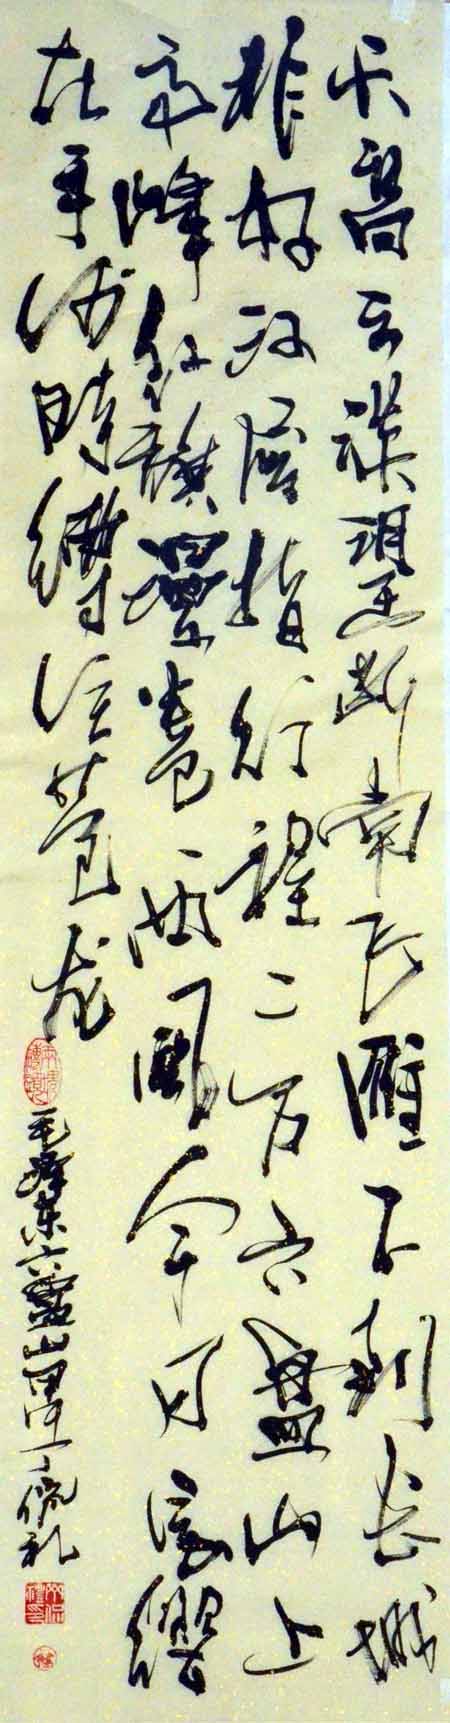 天高云淡望断南飞雁不到長城
非好汉屈指行程二万六盤山上
高峰红旗漫卷西風今日長纓
在手何時縛住苍龙
毛泽东六盤山